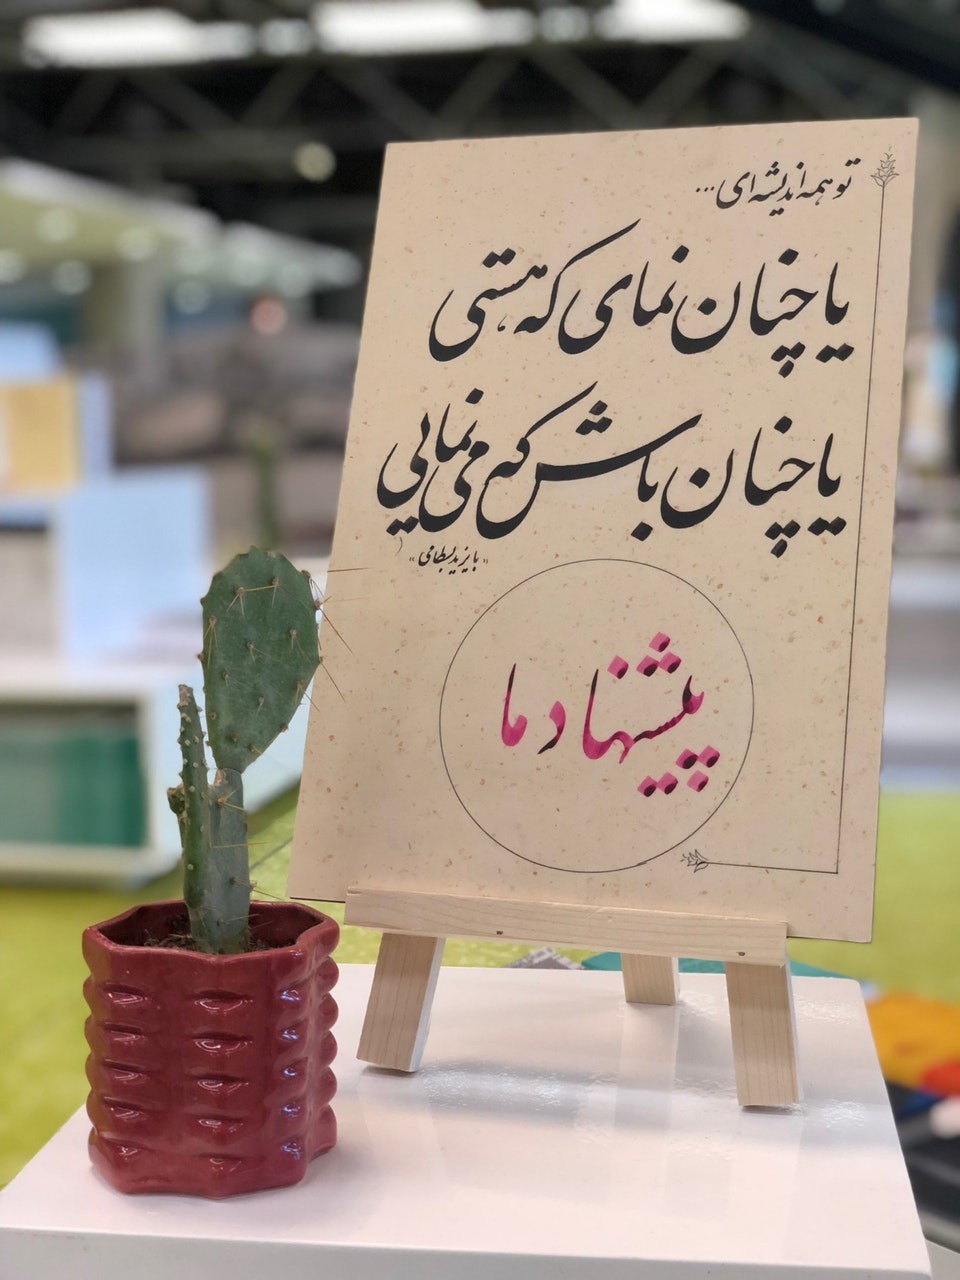 تو همه اندیشه‌ای...
یا چنان نمای که هستی
یا چنان باش که می‌نمایی
"بایزید بسطامی"
پیشنهاد ما